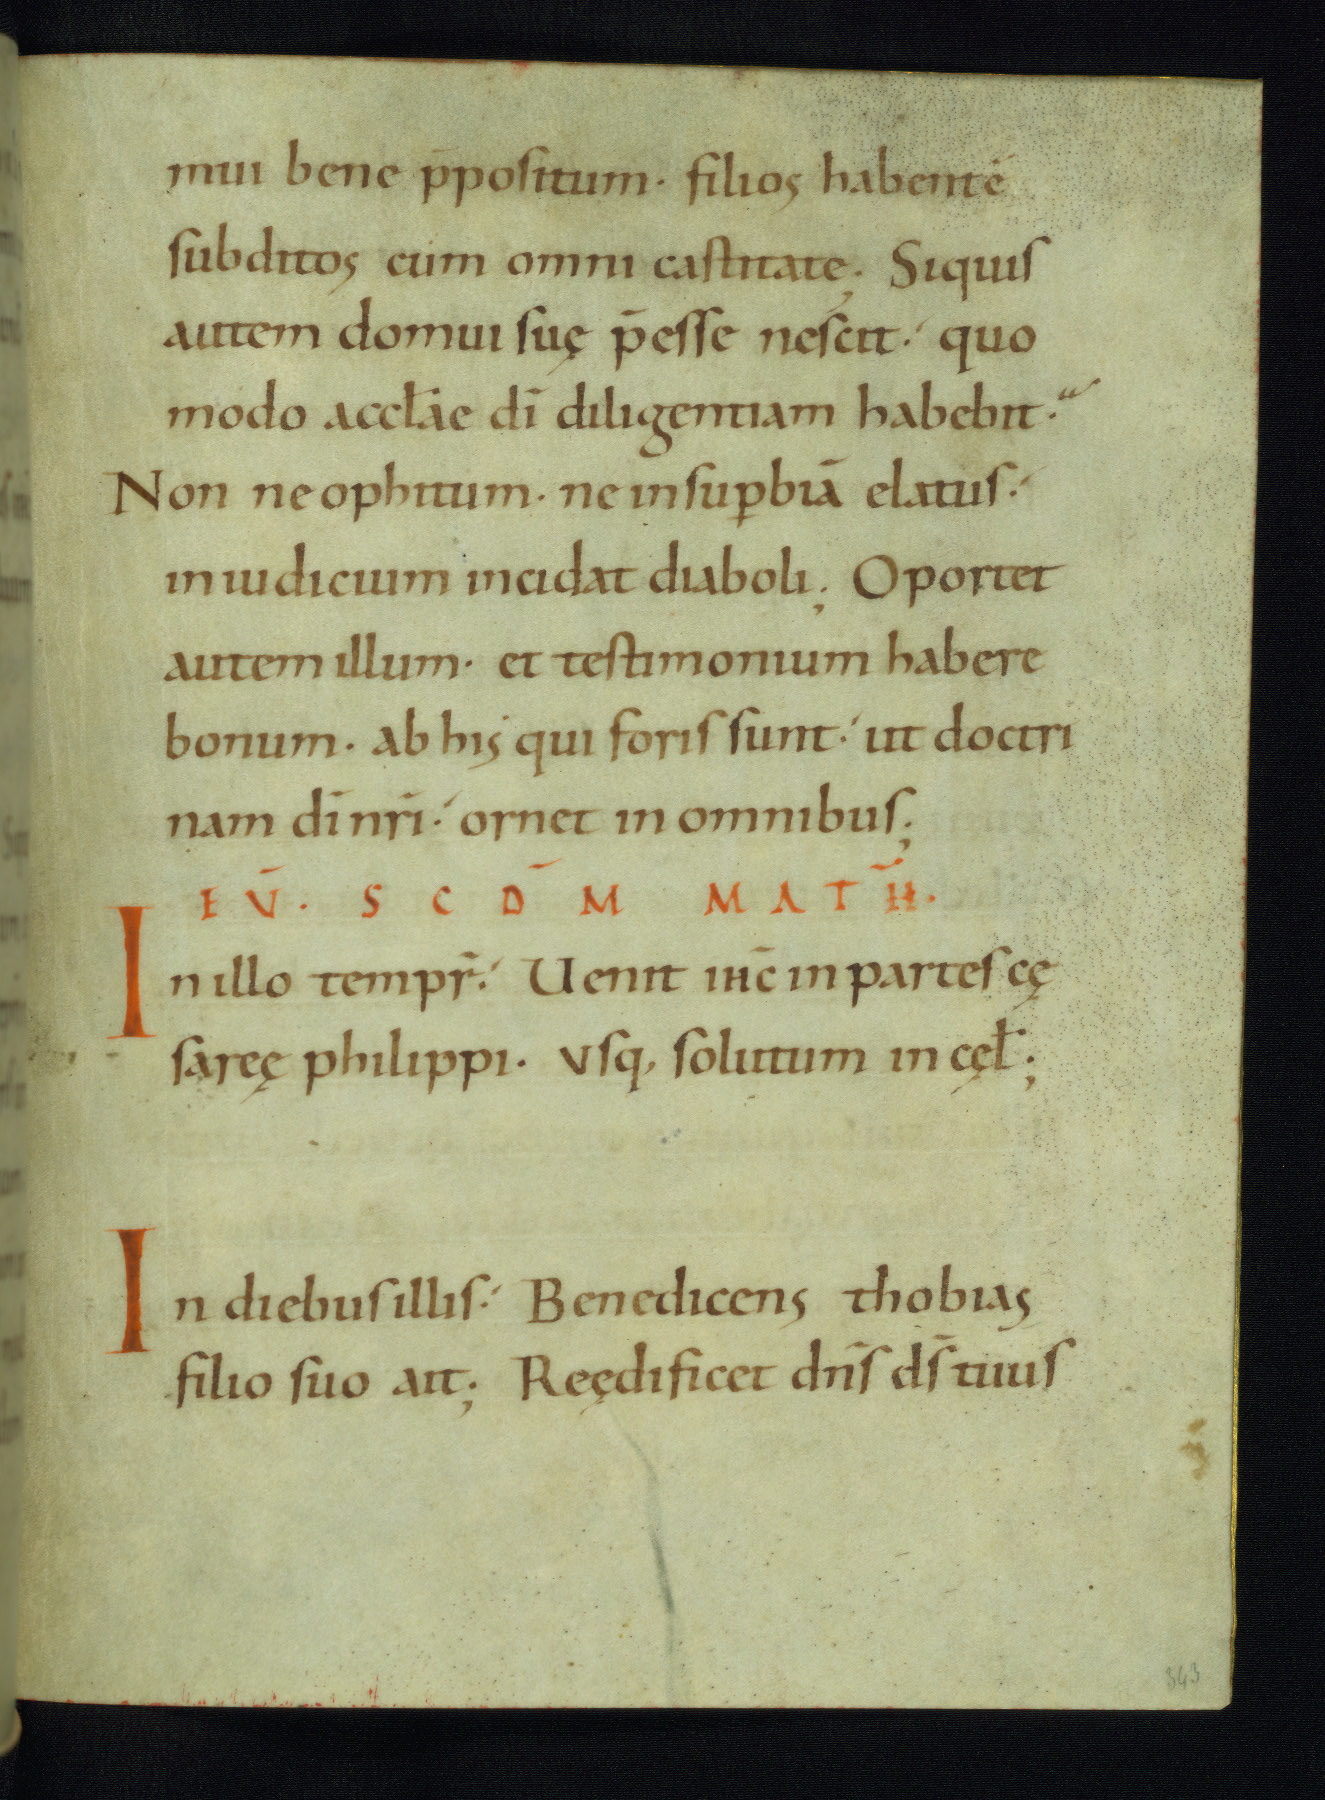 mui bene p̄positum· filios habentē
subditos cum omni castitate; Siquis
autem domui suę p̄esse nescit·́ quo
modo accłae dī diligentiam habebit·
Non neophitum· ne in sup̱biā elatus·́
in iudicium incidat diaboli; Oportet
autem illum· et testimonium habere
bonum· ab his qui foris sunt·́ ut doctri
nam dī nrī·́ ornet in omnibus;
EṼ· SCDM̄ MATH̃·
In illo tempr̄·́ Uenit ih̄c in partes cę
sareę philippi· Vsq, solutum in cęł;
In diebus illis·́ Benedicens thobias
filio suo ait; Reędificet dn̄s ds̄ tuus
343